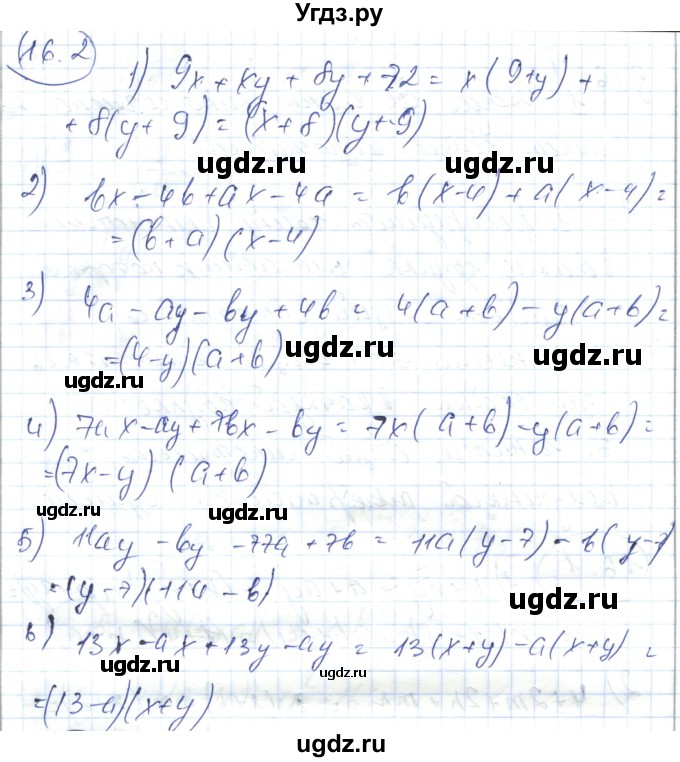 Угдз.ру
16.2
1) 9x + xy + 8y + 72 = x(9+y) +
+ 8(y + 9) = (x+8)(y+9)
ugdz.ru ugdz.ru
2) bx - 4b + ax - 4a = b(x-4) + a(x-4) =
= (b+a)(x-4)
3) 4a - ay - by + 4b = 4(a+b) - y(a+b) =
= (4-y)(a+b)
ugdz.ru ugdz.ru
ugdz.ru
4) 7ax - ay + 7bx - by = 7x(a+b) - y(a+b) =
= (7x-y)(a+b)
ugdz.ru ugdz.ru
5) 11ay - by - 77a + 7b = 11a(y-7) - b(y-7)
= (y-7)(11a - b)
ugdz.ru
6) 13x - ax + 13y - ay = 13(x+y) - a(x+y) =
ugdz.ru ugdz.ru
= (13-a)(x+y)
ugdz.ru